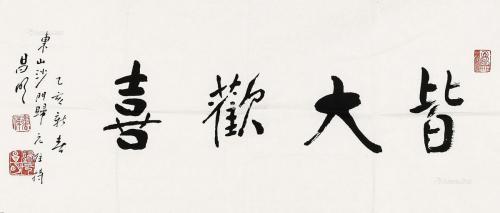 皆大歡喜
乙亥新春
東山沙門歸元住持
昌明